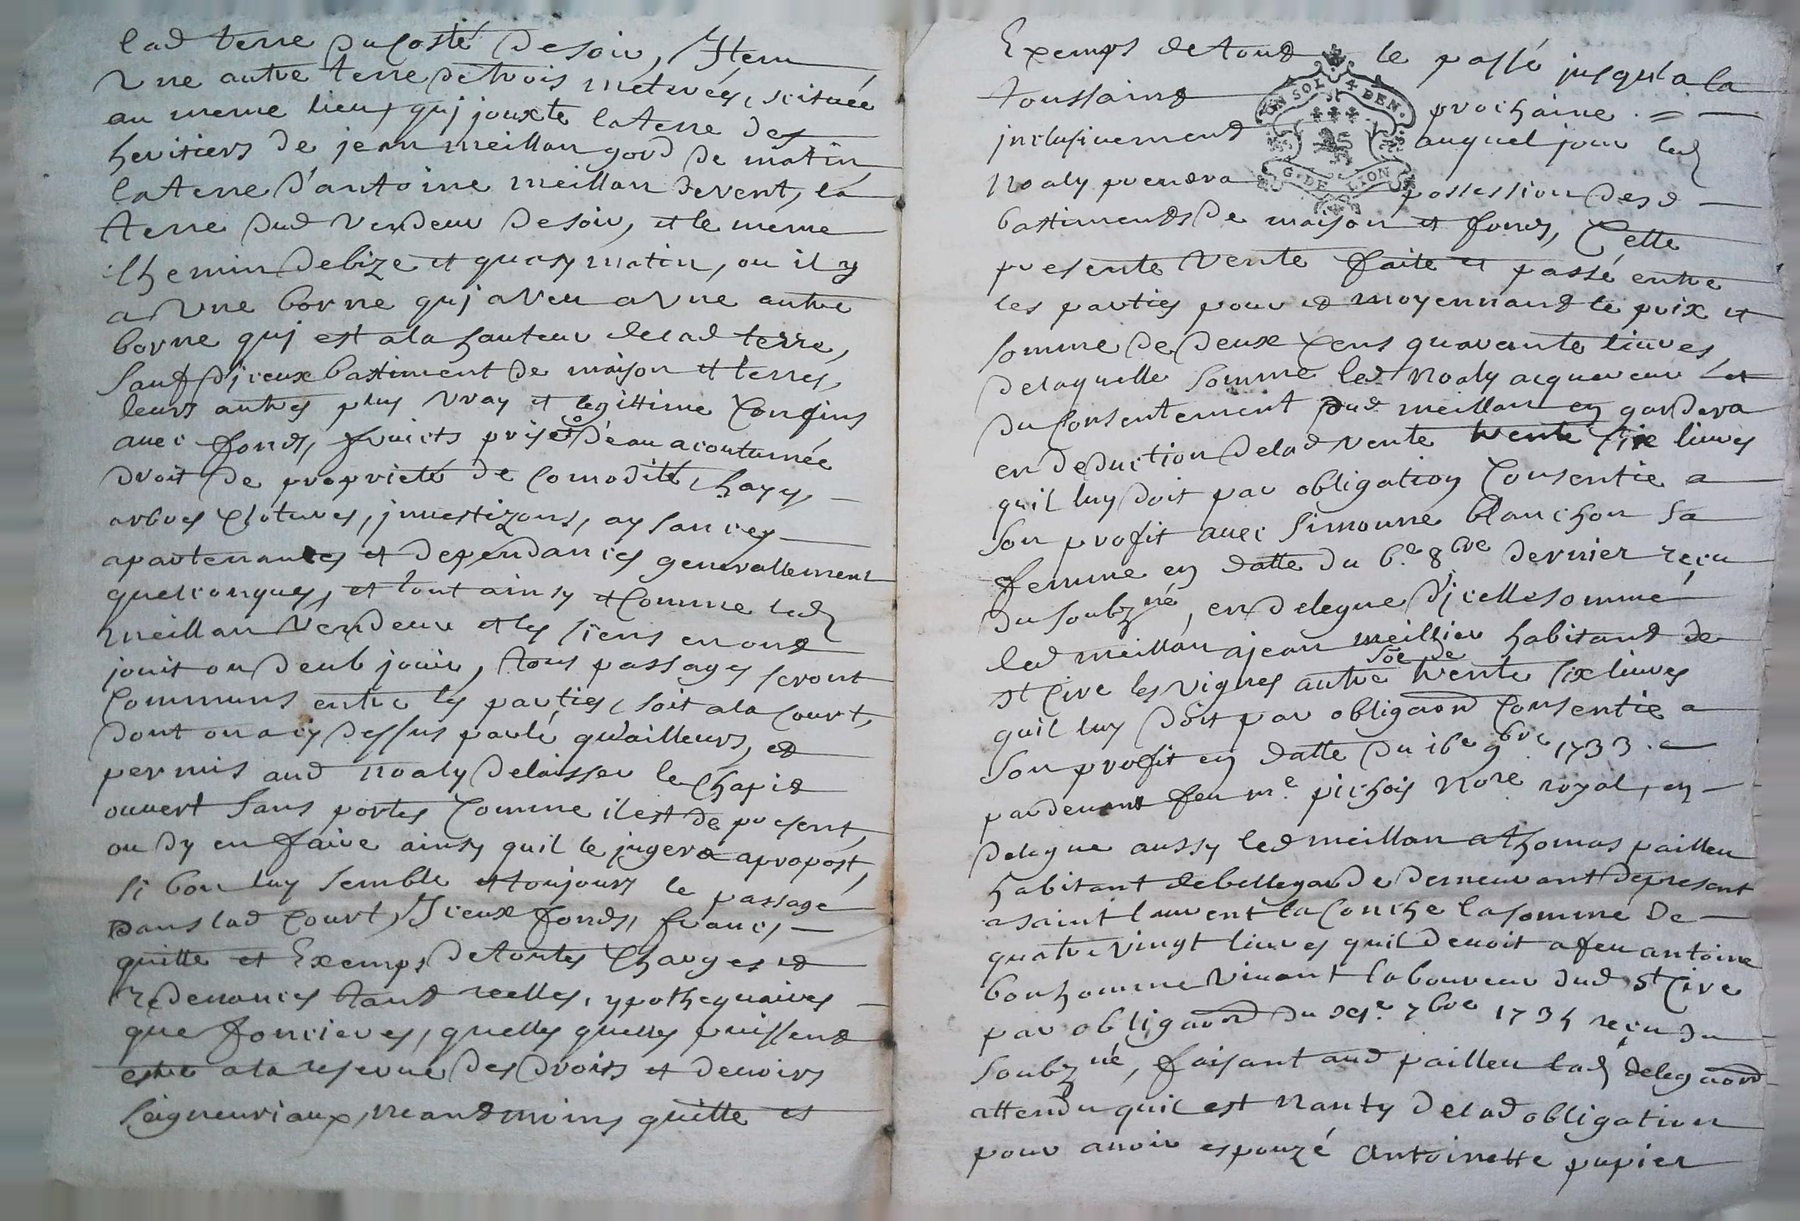 lad terre du costé de soir, Item
Une autre terre de trois meturés, scituée
au meme lieu, quj jouxte la terre des
heritiers de jean meillan gord de matin
la terre d'antoine meillan de vent, la
terre dud vendeur de soir, et le méme
chemin de bize et quasy matin, ou il y
a Une borne quj a veu a Une autre
borne quj est a la hauteur de lad terre,
sauf d'jceux bastiment de maison et terres
leurs autres plus vray et legittime Confins
avec fonds, fruicts prises d'eau acoutumée
droit de proprieté de Comodité, hayes
arbres Clotures, jnvestizons, aysances
apartenances et dependances generallement
quelconques, et tout ainsy et Comme led
meillan vendeur et les siens en ont
jouit ou deub jouir, tous passages seront
Communs entre les parties, soit a la Court,
dont on a cy dessus parlé qu'ailleurs, et
permis aud noaly de laisser le Chapit
ouvert sans portes Comme il est de present,
ou d'y en faire ainsy quil le jugera apropost,
si bon luy semble et toujours le passage
dans lad Court, Jceux fonds, francs,
quitte et Exemps de toutes Charges et
redevances tant reelles, ypothequaires
que foncieres, quelles quelles puissent
estre a la reserve des droits et devoirs
seigneuriaux, neantmoins quitte et
Exemps de tout le passé jusqu'a la
toussaint prochaine
jnclusivement auquel jour led
Noaly prendra possession desd
bastiments de maison et fonds, Cette
presente vente faite et passé entre
les parties pour et moyennant le prix et
somme de deux Cens quarante livres,
de laquelle somme led Noaly acquereur
du Consentement dud meillan en gardera
en deduction de lad vente trente six livres
quil luy doit par obligation Consentie a
son profit avec simonne blanchon sa
femme en datte du 6e 8bre dernier reçu
du soubzné, en delegue d'jcelle somme
led meillan a jean meillier habitant de
st Cire les vignes autre soe de trente six livres
quil luy doit par obligaon Consentie a
son profit en datte du 16e 9bre 1733.
pardevant feu me pichois nore royal, en
delegue aussy led meillan a thomas pailleu
habitant de bellegarde demeurant depresent
a saint laurent la Conche la somme de
quatre vingt livres quil devoit a feu antoine
bonhomme vivant laboureur dud st Cire
par obligaon du 7bre 1734 reçu du
soubzné, faisant aud pailleu lad delegaon
attendu quil est nanty de lad obligation
pour avoir espouzé Antoinette pupier
UN SOL 4 DEN.
G. DE LION